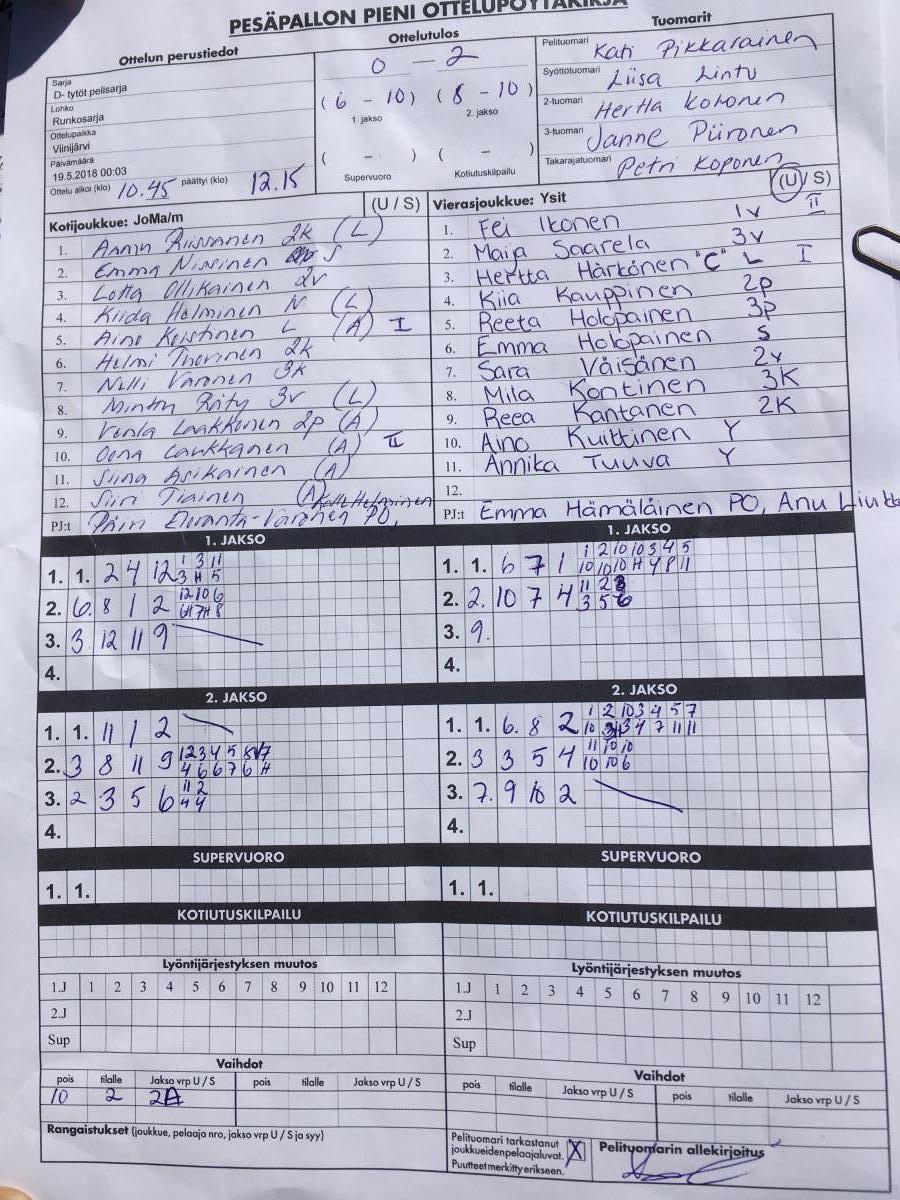 PESÄPALLON PIENI OTTELUPÖYTÄKIRJA
Ottelun perustiedot
Ottelutulos
Tuomarit
Sarja
D- tytöt pelisarja
Lohko
Runkosarja
Ottelupaikka
Viinijärvi
Päivämäärä
19.5.2018 00:03
Ottelu alkoi (klo) 10.45 päättyi (klo) 12.15
0 - 2
(6 - 10) (8 - 10)
1. jakso 2. jakso
( - ) ( - )
Supervuoro Kotiutuskilpailu
Pelituomari Kati Pikkarainen
Syöttötuomari Liisa Lintu
2-tuomari Hertta Kokonen
3-tuomari Janne Piironen
Takarajatuomari Petri Koponen
Kotijoukkue: JoMa/m (U / S)
1. Riissanen 2K (L)
2. Emma Nissinen S
3. Lotta Ollikainen 2v
4. Kiida Helminen N (L)
5. Aino L (A) I
6. Helmi 2K
7. Nelli Varonen 3K
8. 3v (L)
9. Venla Laakkonen 2p (A)
10. Oona Laukkanen (A) II
11. Siina Asikainen (A)
12. Siiri Tiainen (A)
PJ:t Päivi PO,
Vierasjoukkue: Ysit (U / S)
1. Fei Ikonen 1v II
2. Maija Saarela 3v
3. Hertta Härkönen "C" L I
4. Kiia Kauppinen 2p
5. Reeta Holopainen 3p
6. Emma Holopainen S
7. Sara Väisänen 2v
8. Mila Kontinen 3K
9. Reea Kantanen 2K
10. Aino Kuittinen Y
11. Annika Tuuva Y
12.
PJ:t Emma Hämäläinen PO, Anu
1. JAKSO
1. 1. 2 4 12 1 3 11
3 H 5
2. 6. 8 1 2 12 10 6
3. 3 12 11 9
4.
1. JAKSO
1. 1. 6 7 1 1 2 10 10 3 4 5
10 10 10 H 4 8 11
2. 2. 10 7 4 11 2
3 5 6
3. 9.
4.
2. JAKSO
1. 1. 11 1 2
2. 3 8 11 9 1 2 3 4 5 8
4 6 6 7 6 H
3. 2 3 5 6 11 2
4 4
4.
2. JAKSO
1. 1. 6. 8 2 1 2 10 3 4 5 7
2. 3 3 5 4 11 10 10
10 10 6
3. 7. 9 10 2
4.
SUPERVUORO
1. 1.
SUPERVUORO
1. 1.
KOTIUTUSKILPAILU
KOTIUTUSKILPAILU
Lyöntijärjestyksen muutos
1.J 1 2 3 4 5 6 7 8 9 10 11 12
2.J
Sup
Lyöntijärjestyksen muutos
1.J 1 2 3 4 5 6 7 8 9 10 11 12
2.J
Sup
Vaihdot
pois tilalle Jakso vrp U / S pois tilalle Jakso vrp U / S
10 2 2A
Vaihdot
pois tilalle Jakso vrp U / S pois tilalle Jakso vrp U / S
Rangaistukset (joukkue, pelaaja nro, jakso vrp U / S ja syy)
Pelituomari tarkastanut
joukkueidenpelaajaluvat. X
Puutteet merkitty erikseen.
Pelituomarin allekirjoitus